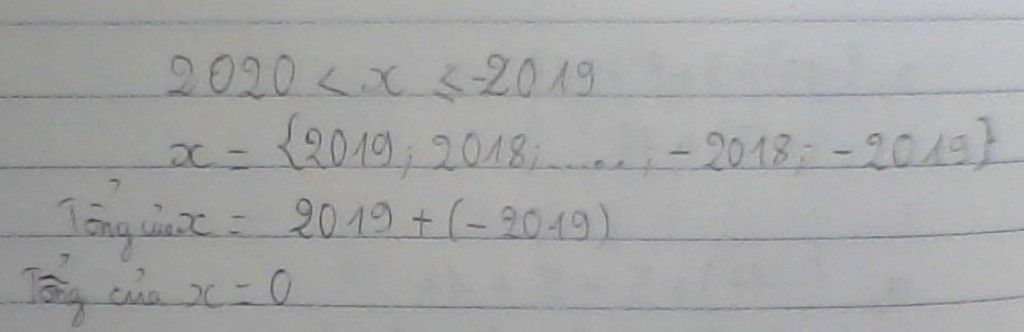 2020 < x ≤ -2019
x = {2019; 2018; .....; -2018; -2019}
Tổng của x = 2019 + (-2019)
Tổng của x = 0